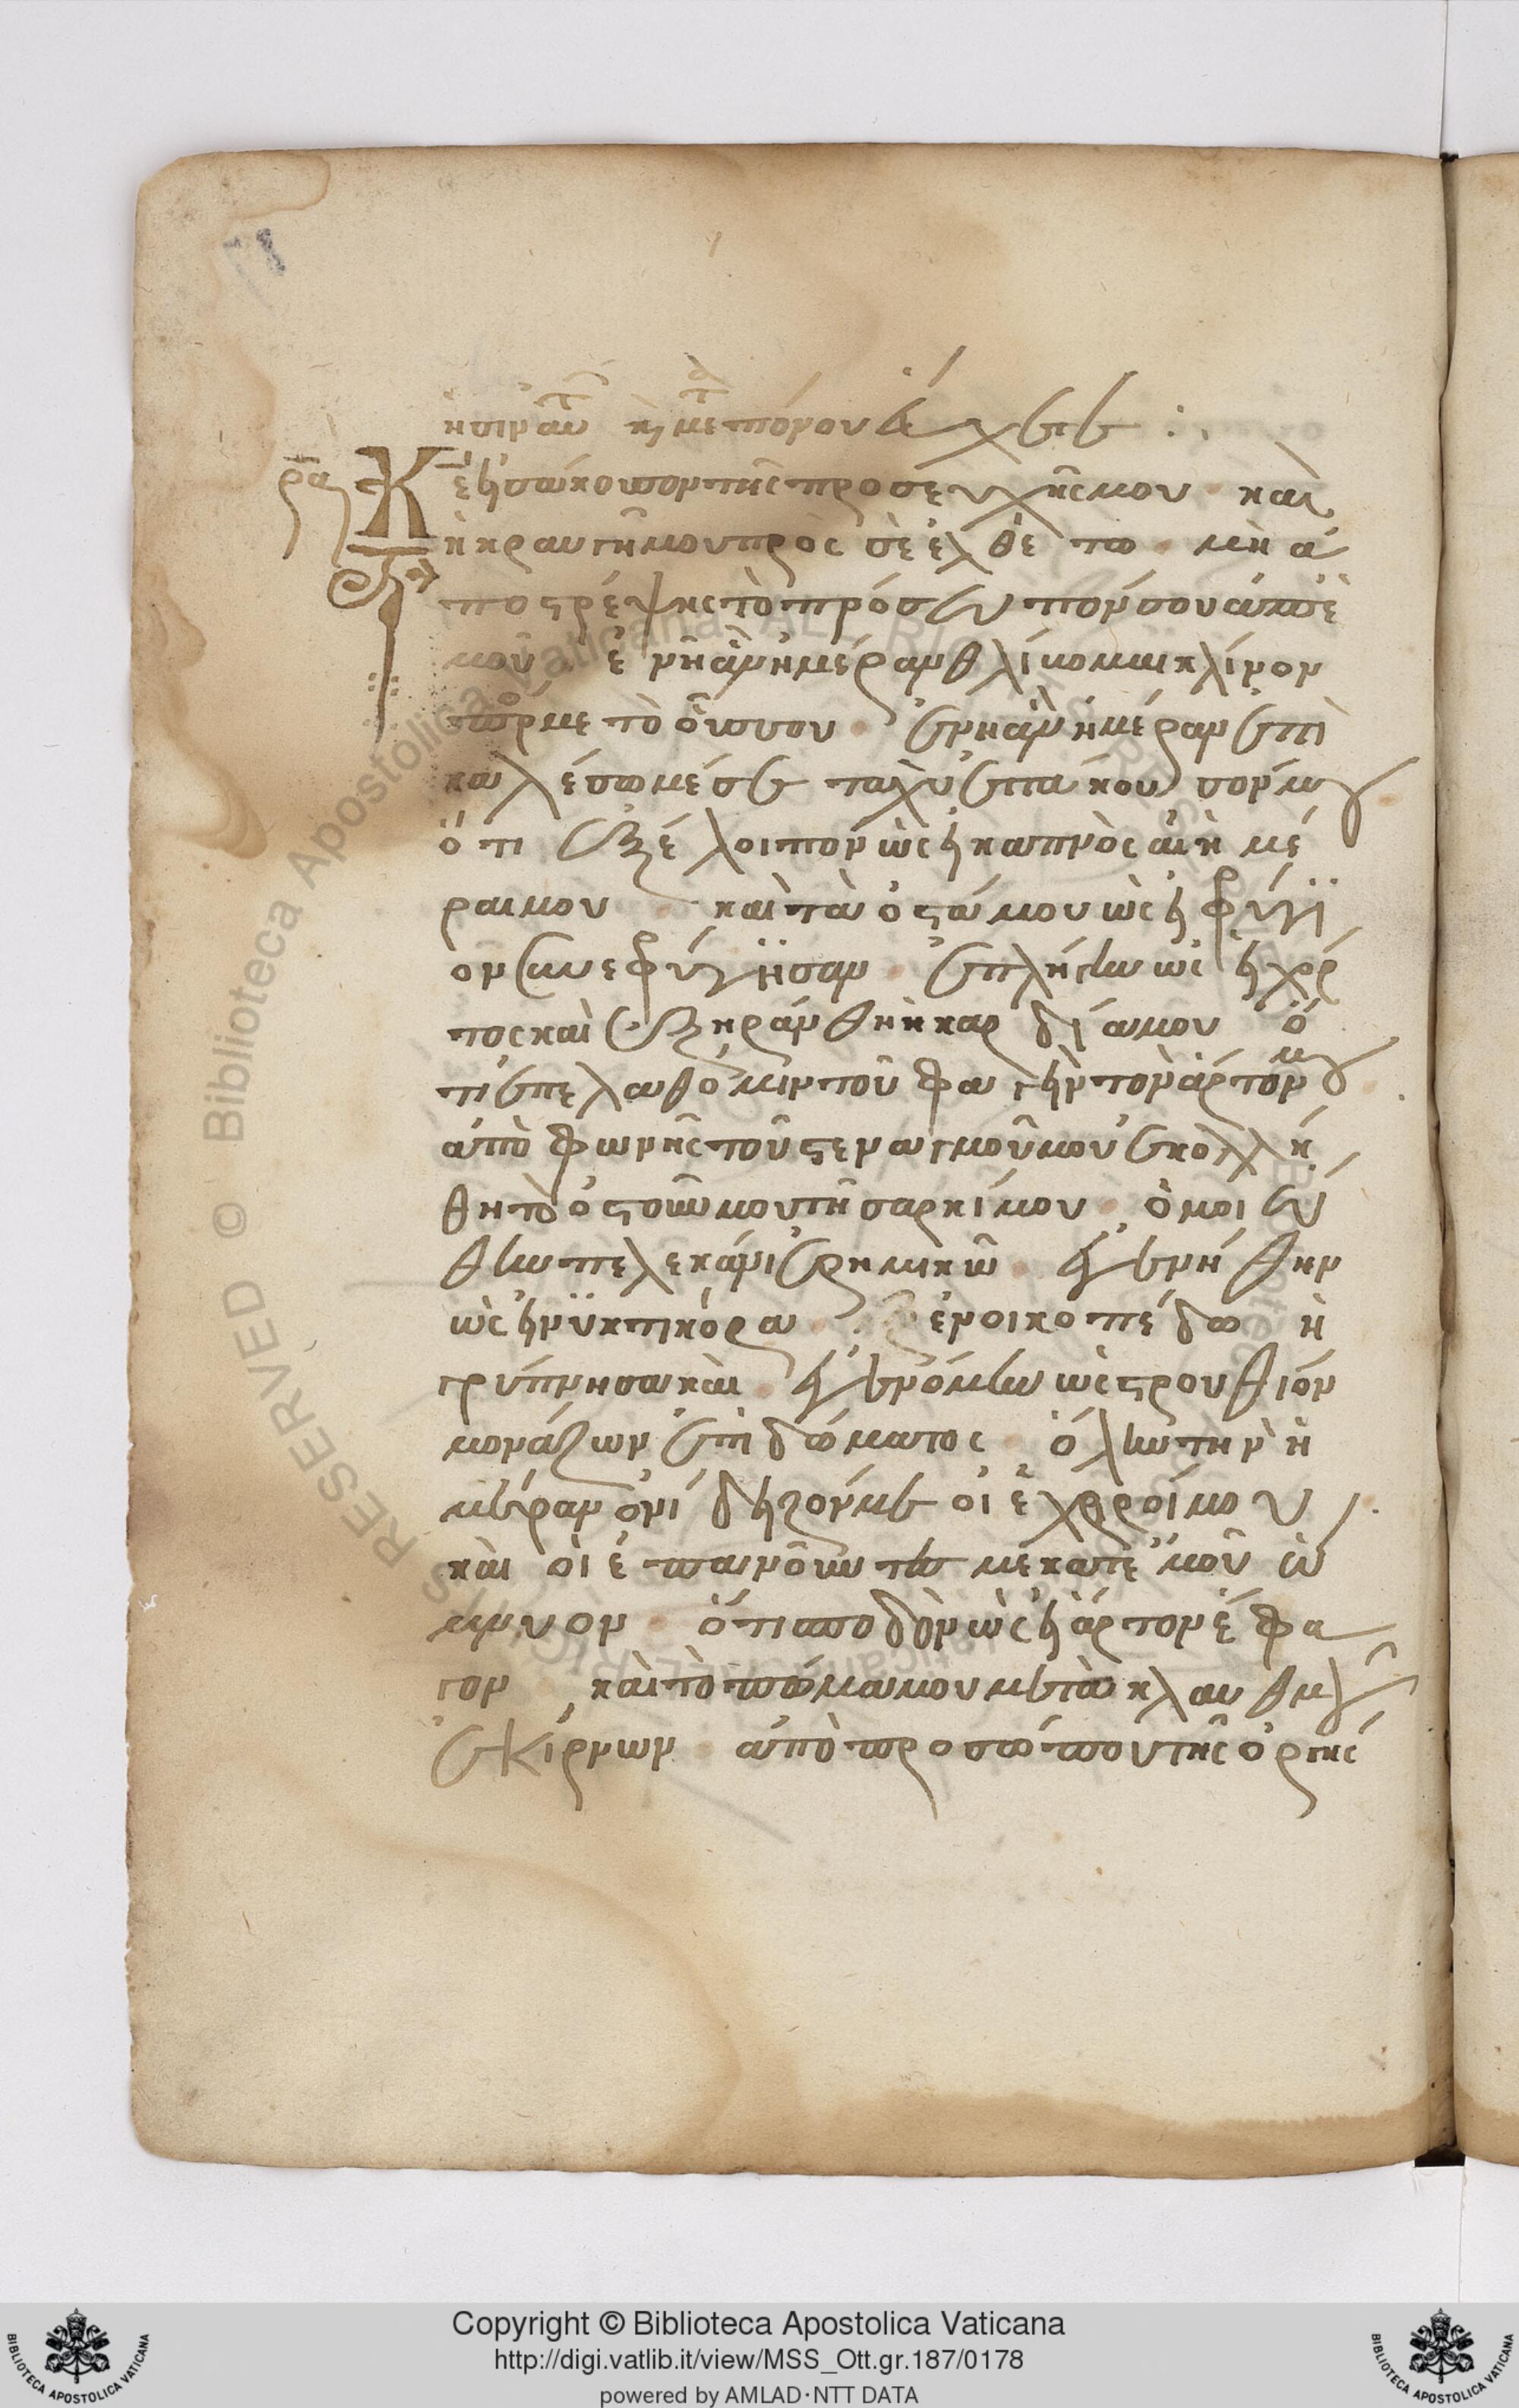 ρα
Κε εἰσάκουσον τῆς προσευχῆς μου καὶ
ἡ κραυγή μου πρὸς σὲ ἐλθέτω μὴ ἀ
ποστρέψης τὸ πρόσωπόν σου ἀπ' ἐ
μοῦ ἐν ἧ ἂν ἡμέρα θλίβομαι κλῖνον
πρός με τὸ οὖς σου ἐν ἧ ἂν ἡμέρα ἐπι
καλέσωμέ σε ταχὺ ἐπάκουσόν μου
ὅτι ἐξέλοιπον ὡσεὶ καπνὸς αἱ ἡμέ
ραι μου καὶ τὰ ὀστᾶ μου ὡσεὶ φρύγι
ον συνεφρύγησαν ἐπλήγην ὡσεὶ χόρ
τος καὶ ἐξηράνθη ἡ καρδία μου ὅ
τι ἐπελαθόμην τοῦ φαγεῖν τὸν ἄρτον μου
ἀπὸ φωνῆς τοῦ στεναγμοῦ μου ἐκολλή
θη τὸ ὀστοῦν μου τῆ σαρκί μου ὁμοιώ
θην πελεκάνι ἐρημικῶ ἐγενήθην
ὡσεὶ νυκτικόραξ ἐν οἰκοπέδω ἠ
γρύπνησα καὶ ἐγενόμην ὡς στρουθίον
μονάζων ἐπὶ δώματος ὅλην τὴν ἡ
μέραν ὀνείδιζόν με οἱ ἐχθροί μου
καὶ οἱ ἐπαινοῦντές με κατ' ἐμοῦ ὤ
μνυον ὅτι σποδὸν ὡσεὶ ἄρτον ἔφα
γον καὶ τὸ πόμα μου μετὰ κλαυθμοῦ
ἐκίρνων ἀπὸ προσώπου τῆς ὀργῆς
RESERVED © Biblioteca Apostolica Vaticana ALL RIGHTS
Copyright © Biblioteca Apostolica Vaticana
http://digi.vatlib.it/view/MSS_Ott.gr.187/0178
powered by AMLAD·NTT DATA
BIBLIOTECA APOSTOLICA VATICANA
BIBLIOTECA APOSTOLICA VATICANA